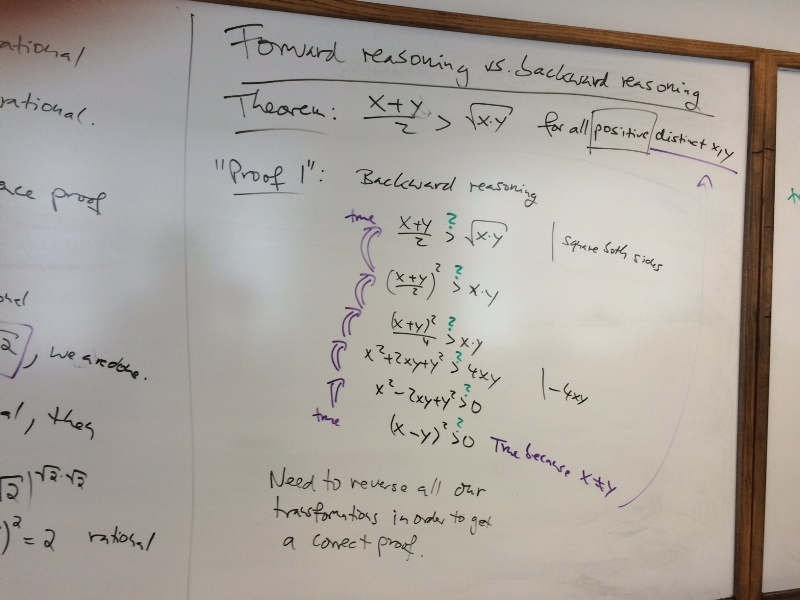 ational
rational.
ace proof
onal
√2, we are done.
al, then
√2)^√2·√2
)² = 2 rational
Forward reasoning vs. backward reasoning
Theorem: x+y/2 > √x·y for all positive distinct x,y
"Proof 1": Backward reasoning
true x+y/2 ?> √x·y | square both sides
(x+y/2)² ?> x·y
(x+y)²/4 ?> x·y
x²+2xy+y² ?> 4xy | -4xy
x²-2xy+y² ?> 0
true (x-y)² ?> 0 True because x≠y
Need to reverse all our
transformations in order to get
a correct proof.